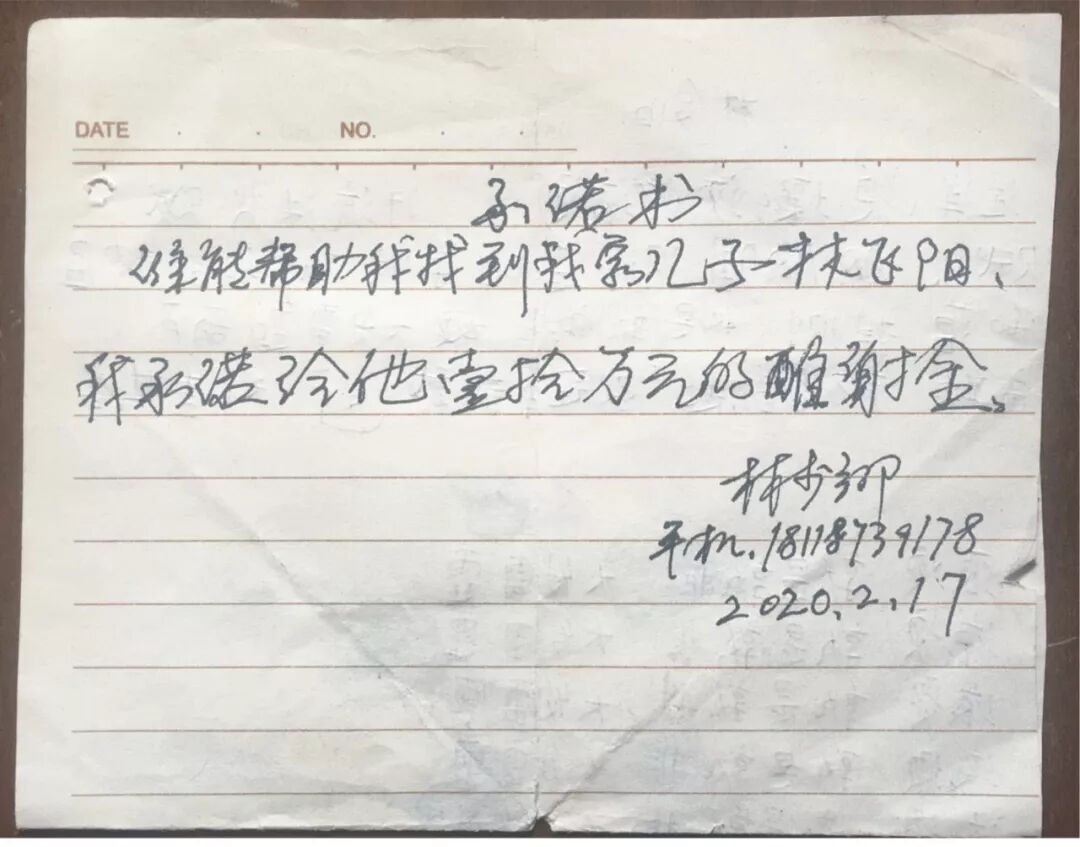 DATE . . NO. . .
承诺书
谁能帮助我找到我家儿子林飞阳、
我承诺给他壹拾万元的酬谢金。
林少卿
手机.18118739178
2020.2.17